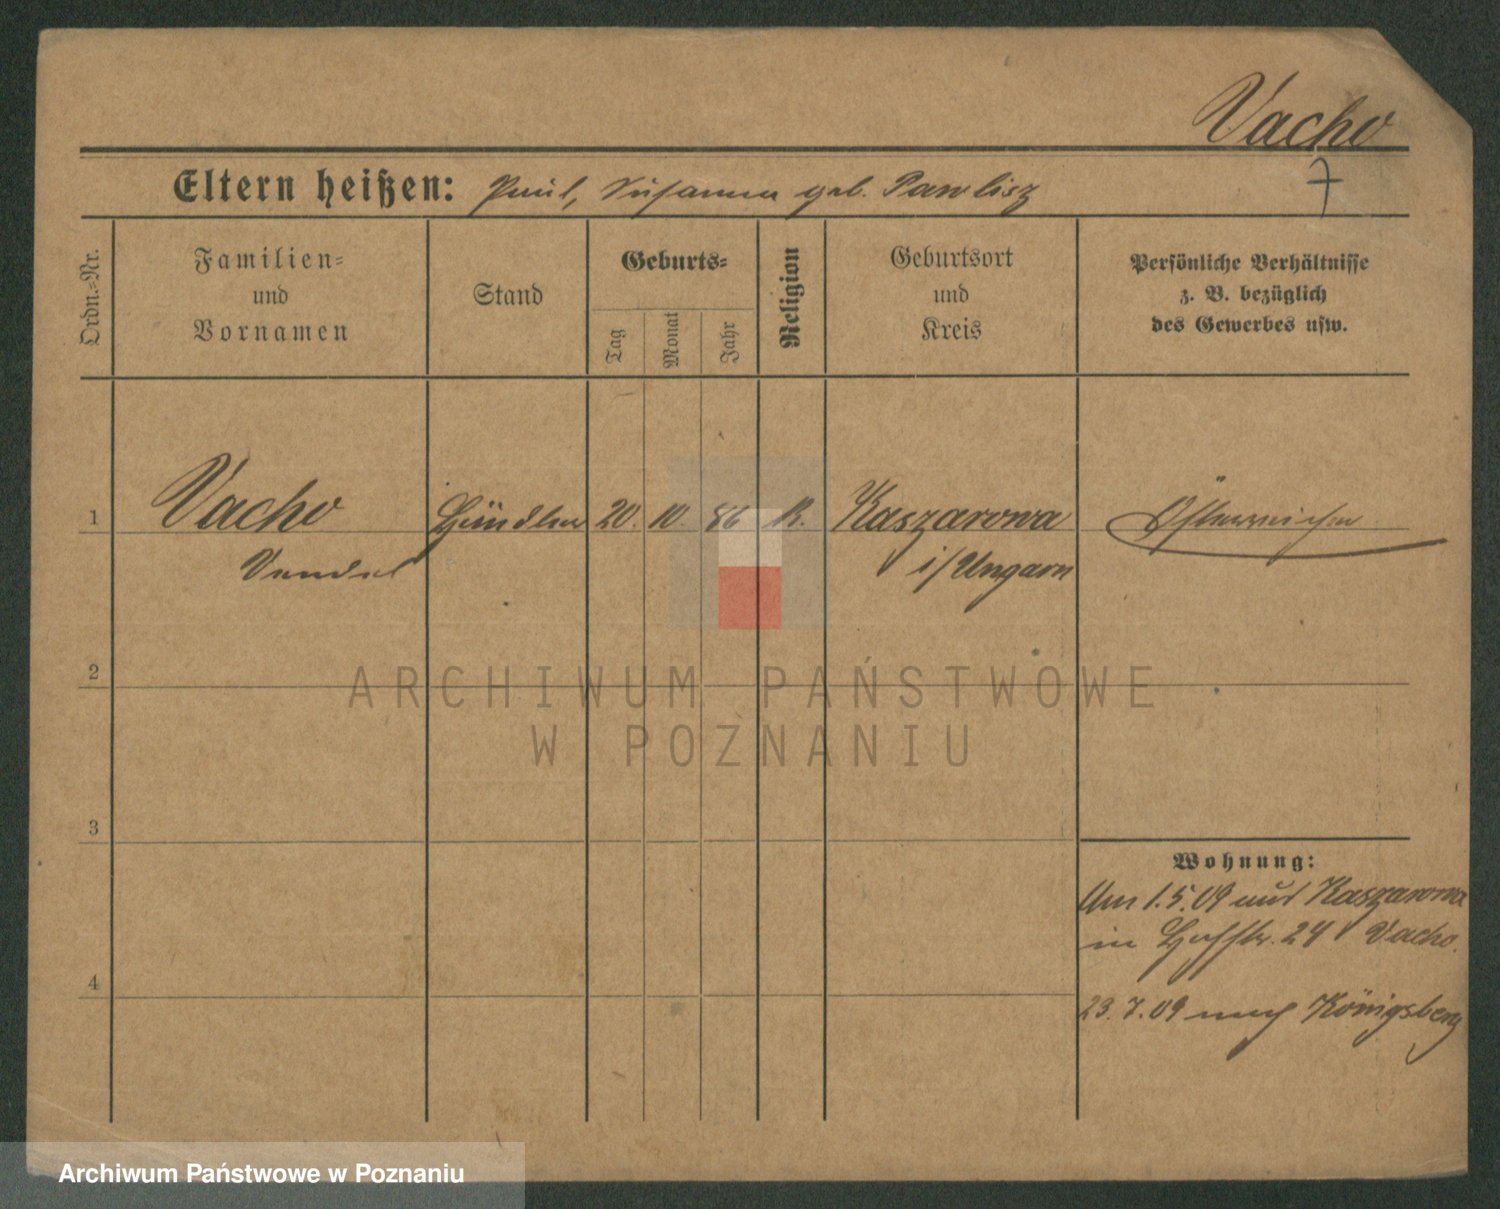 Vacho
7
Eltern heißen: Paul, Susanna geb. Pawlisz
Ordn.-Nr.
Familien-
und
Vornamen
Stand
Geburts-
Tag
Monat
Jahr
Religion
Geburtsort
und
Kreis
Persönliche Verhältnisse
z. B. bezüglich
des Gewerbes usw.
1 Vacho Händler 20. 10. 86 K. Kaszarowa Österreicher
Vendel i/Ungarn
2
ARCHIWUM PAŃSTWOWE
W POZNANIU
3
Wohnung:
Am 1.5.09 aus Kaszarowa
in 24 Vacho.
4
23.7.09 nach Königsberg
Archiwum Państwowe w Poznaniu